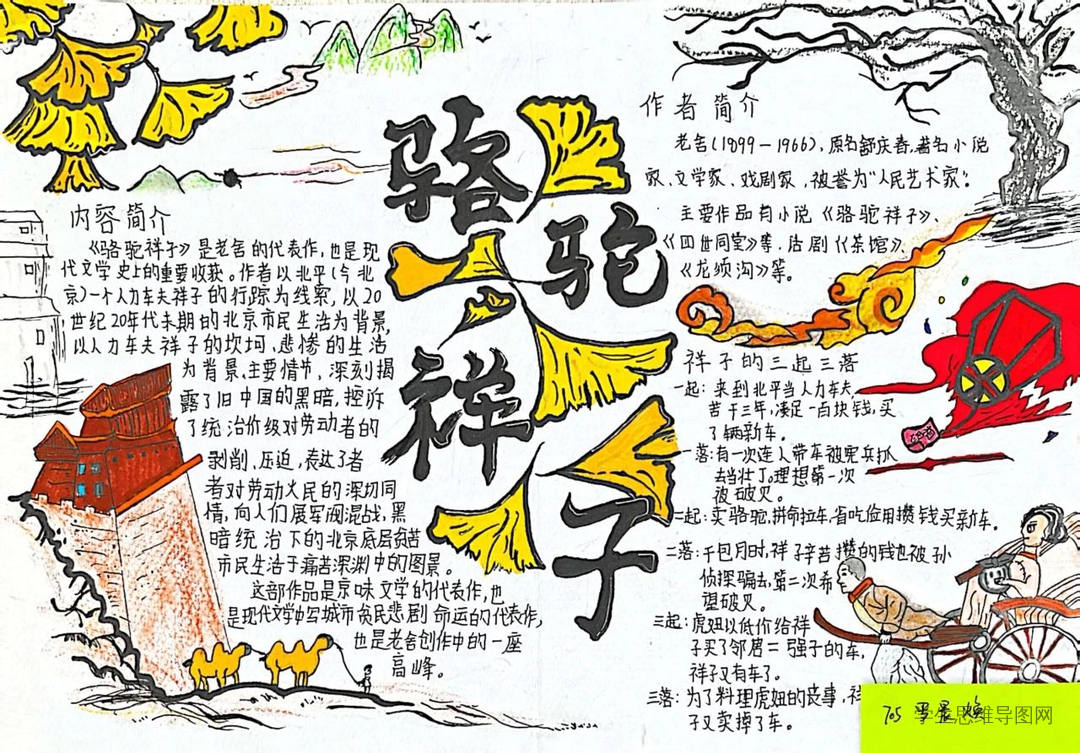 骆驼祥子
内容简介
《骆驼祥子》是老舍的代表作,也是现
代文学史上的重要收获。作者以北平(今北
京)一个人力车夫祥子的行踪为线索,以20
世纪20年代末期的北京市民生活为背景,
以人力车夫祥子的坎坷,悲惨的生活
为背景、主要情节,深刻揭
露了旧中国的黑暗,控诉
了统治阶级对劳动者的
剥削,压迫,表达了者
者对劳动人民的深切同
情,向人们展军阀混战,黑
暗统治下的北京底层贫苦
市民生活于痛苦深渊中的图景。
这部作品是京味文学的代表作,也
是现代文学中写城市贫民悲剧命运的代表作,
也是老舍创作中的一座
高峰。
作者简介
老舍(1899-1966),原名舒庆春,著名小说
家、文学家、戏剧家,被誉为“人民艺术家”。
主要作品有小说《骆驼祥子》、
《四世同堂》等,话剧《茶馆》、
《龙须沟》等。
祥子的三起三落
一起:来到北平当人力车夫,
苦干三年,凑足一百块钱,买
了辆新车。
一落:有一次连人带车被宪兵抓
去当壮丁。理想第一次
被破灭。
二起:卖骆驼,拼命拉车,省吃俭用攒钱买新车。
二落:干包月时,祥子辛苦攒的钱也被孙
侦探骗去,第二次希
望破灭。
三起:虎妞以低价给祥
子买了邻居二强子的车,
祥子又有车了。
三落:为了料理虎妞的丧事,祥
子又卖掉了车。
705
思维导图网